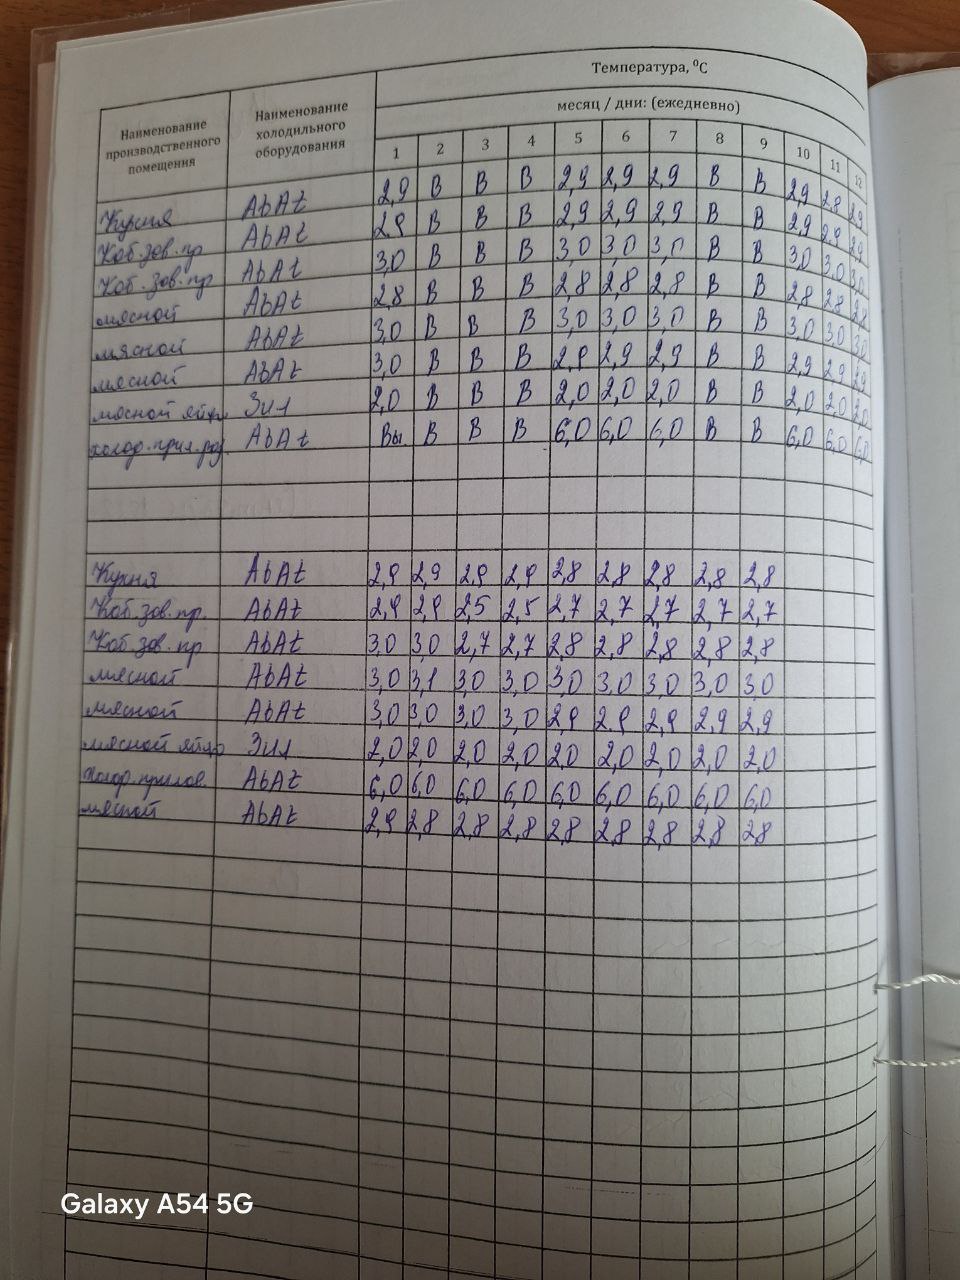 Температура, ⁰С
Наименование производственного помещения
Наименование холодильного оборудования
месяц / дни: (ежедневно)
1 2 3 4 5 6 7 8 9 10 11 12
Кухня AbAt 2,9 В В В 2,9 2,9 2,9 В В 2,9 2,8 2,9
Коб.зав.пр AbAt 2,9 В В В 2,9 2,9 2,9 В В 2,9 2,9 2,9
Коб.зав.пр AbAt 3,0 В В В 3,0 3,0 3,0 В В 3,0 3,0 3,0
мясной AbAt 2,8 В В В 2,8 2,8 2,8 В В 2,8 2,8 2,8
мясной AbAt 3,0 В В В 3,0 3,0 3,0 В В 3,0 3,0 3,0
мясной AbAt 3,0 В В В 2,9 2,9 2,9 В В 2,9 2,9 2,9
мясной яйцо Зил 2,0 В В В 2,0 2,0 2,0 В В 2,0 2,0 2,0
AbAt Вы. В В В 6,0 6,0 6,0 В В 6,0 6,0 6,0
Кухня AbAt 2,9 2,9 2,9 2,9 2,8 2,8 2,8 2,8 2,8
Коб.зав.пр. AbAt 2,9 2,9 2,5 2,5 2,7 2,7 2,7 2,7 2,7
Коб.зав.пр AbAt 3,0 3,0 2,7 2,7 2,8 2,8 2,8 2,8 2,8
мясной AbAt 3,0 3,1 3,0 3,0 3,0 3,0 3,0 3,0 3,0
мясной AbAt 3,0 3,0 3,0 3,0 2,9 2,9 2,9 2,9 2,9
мясной яйцо Зил 2,0 2,0 2,0 2,0 2,0 2,0 2,0 2,0 2,0
AbAt 6,0 6,0 6,0 6,0 6,0 6,0 6,0 6,0 6,0
мясной AbAt 2,9 2,8 2,8 2,8 2,8 2,8 2,8 2,8 2,8
Galaxy A54 5G